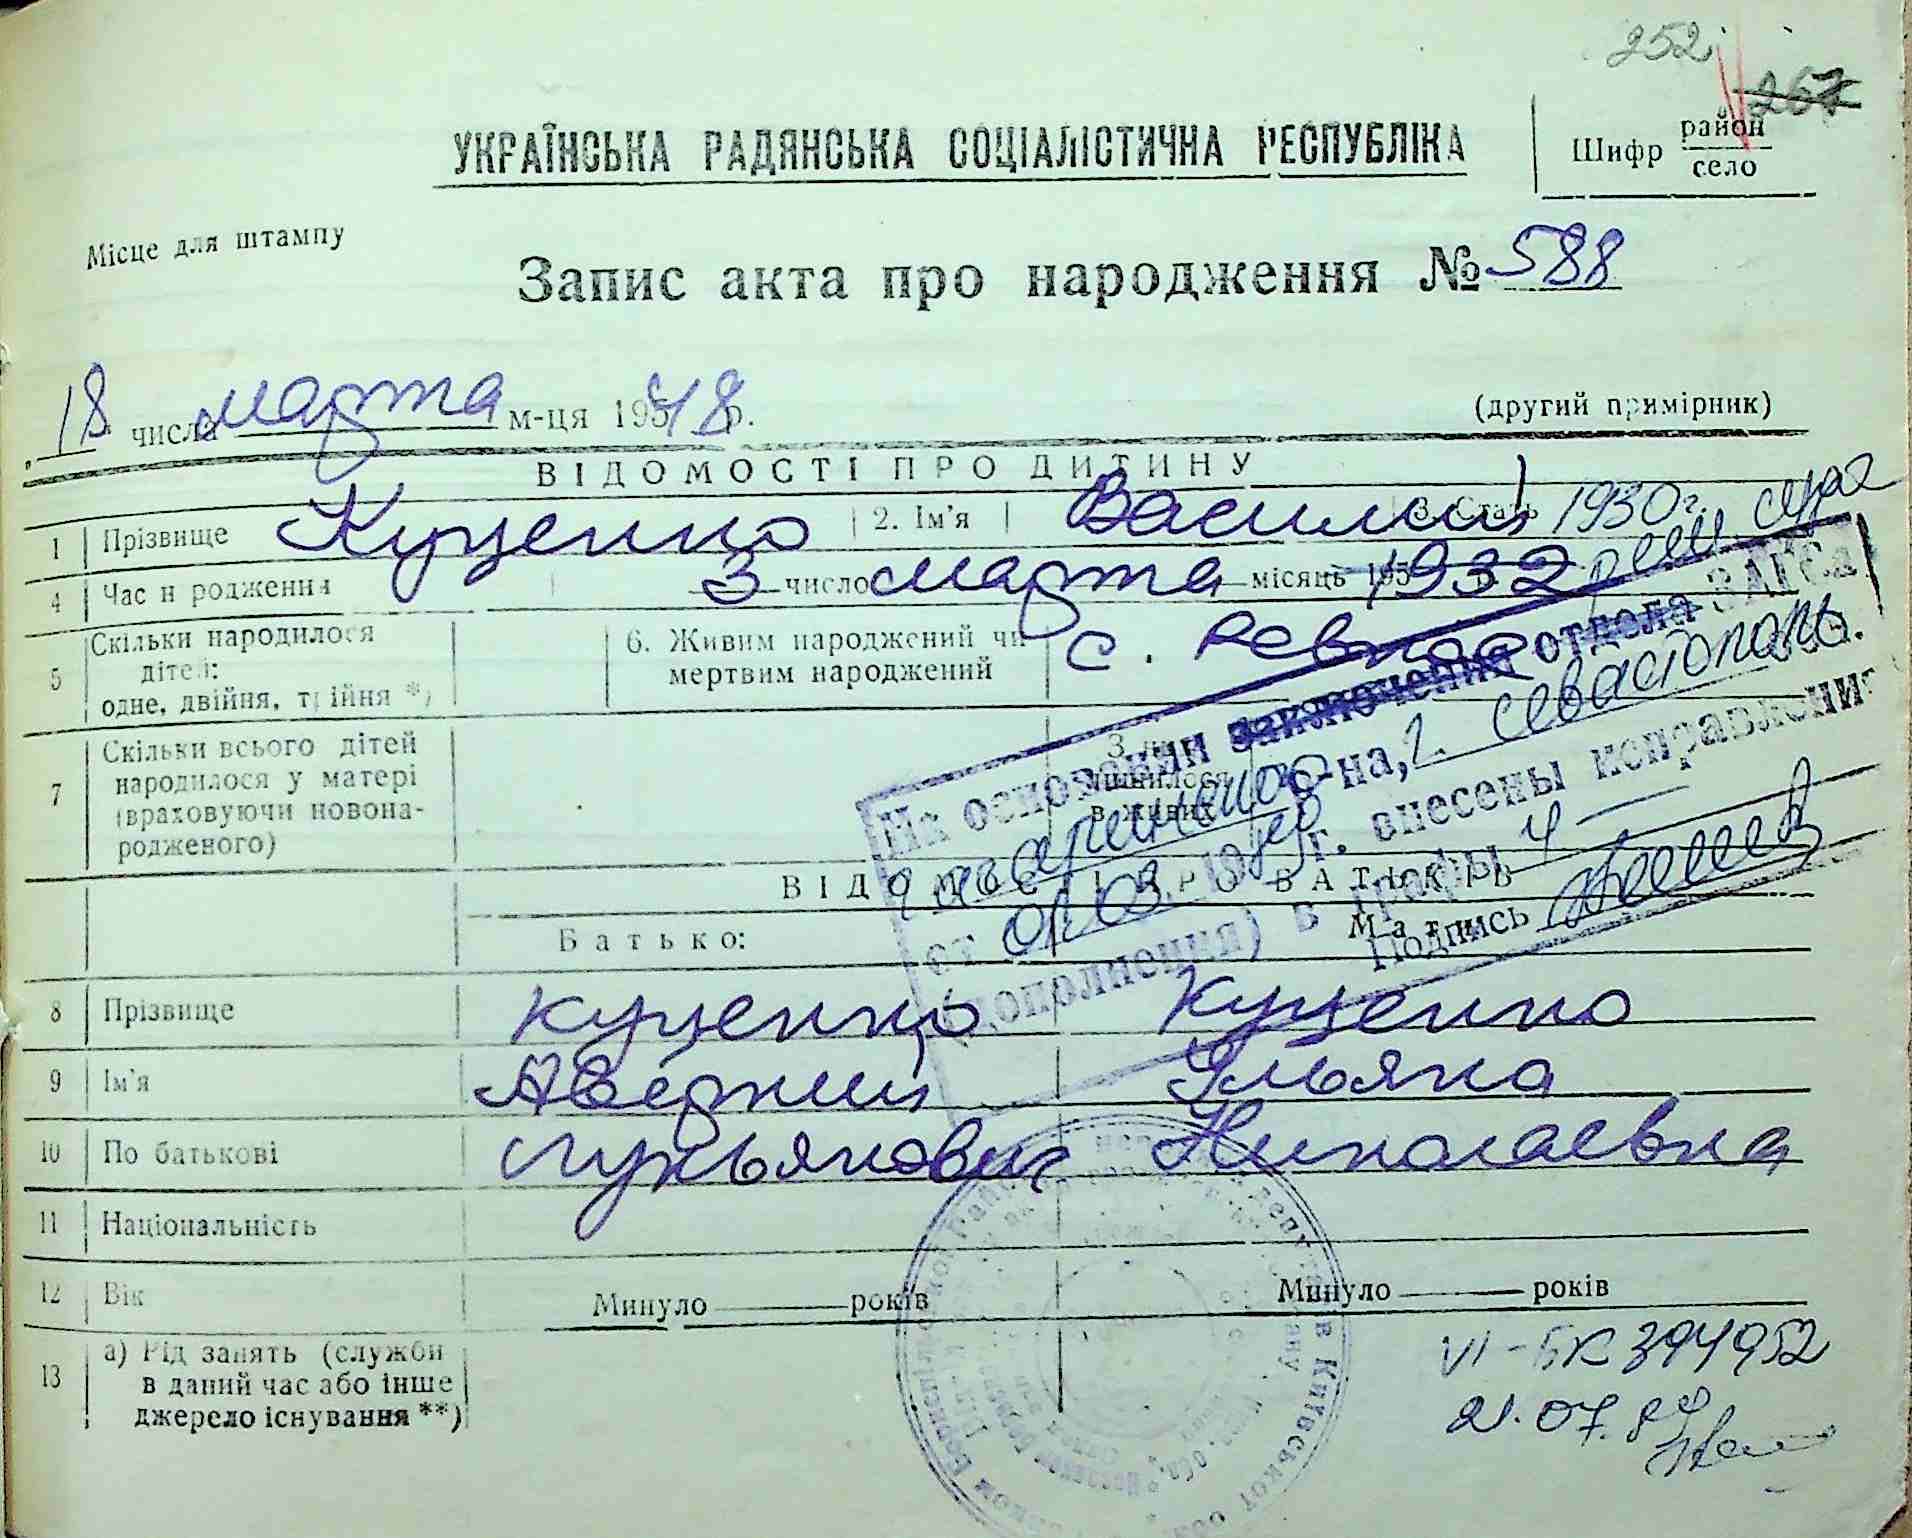 252
267
УКРАЇНСЬКА РАДЯНСЬКА СОЦІАЛІСТИЧНА РЕСПУБЛІКА
Шифр район
село
Місце для штампу
Запис акта про народження № 588
18 числа марта м-ця 1948 р.
(другий примірник)
ВІДОМОСТІ ПРО ДИТИНУ
1 Прізвище Куценко 2. Ім'я Василий 3. Стать 1930 г.
4 Час н родження 3 число марта місяць 1932
5 Скільки народилося дітей: одне, двійня, трійня *)
6. Живим народжений чи мертвим народжений
с.
На основании заключения отдела ЗАГСа
р-на, г. Севастополь
от 01.03. 19 г. внесены исправления
(дополнения) в графы 4
Подпись
7 Скільки всього дітей народилося у матері (враховуючи новонародженого)
З них лишилося в живих
ВІДОМОСТІ ПРО БАТЬКІВ
Батько: Мати
8 Прізвище Куценко Куценко
9 Ім'я Аверкий Ульяна
10 По батькові Лукьянович Николаевна
11 Національність
12 Вік Минуло років Минуло років
13 а) Рід занять (служби в даний час або інше джерело існування **)
VI-БК 394952
21.07.